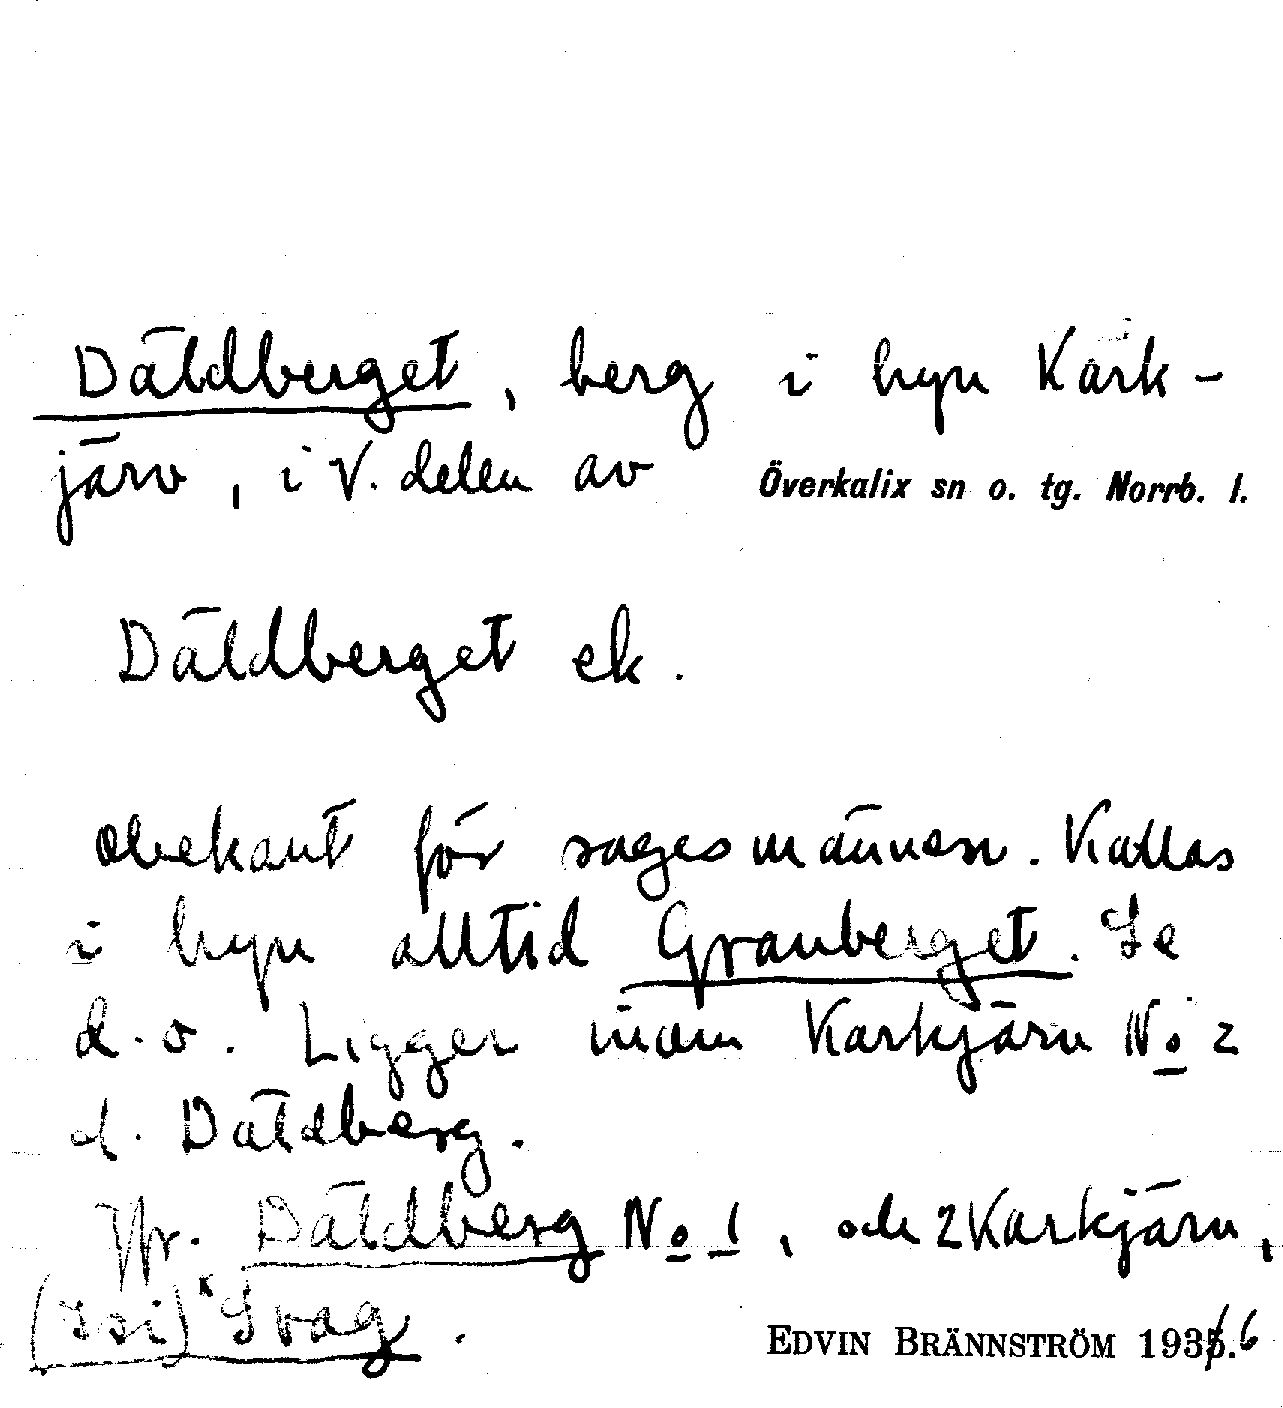 Däldberget, berg i byn Kark-
järv, i V. delen av Överkalix sn o. tg. Norrb. l.
Däldberget ek.
obekant för sagesmännen. Kallas
i byn alltid Granberget. Se
d.o. Ligger inom Karkjärv No 2
d. Däldberg.
Jfr. Däldberg No 1, och 2 Karkjärv,
Svag.
EDVIN BRÄNNSTRÖM 1936.